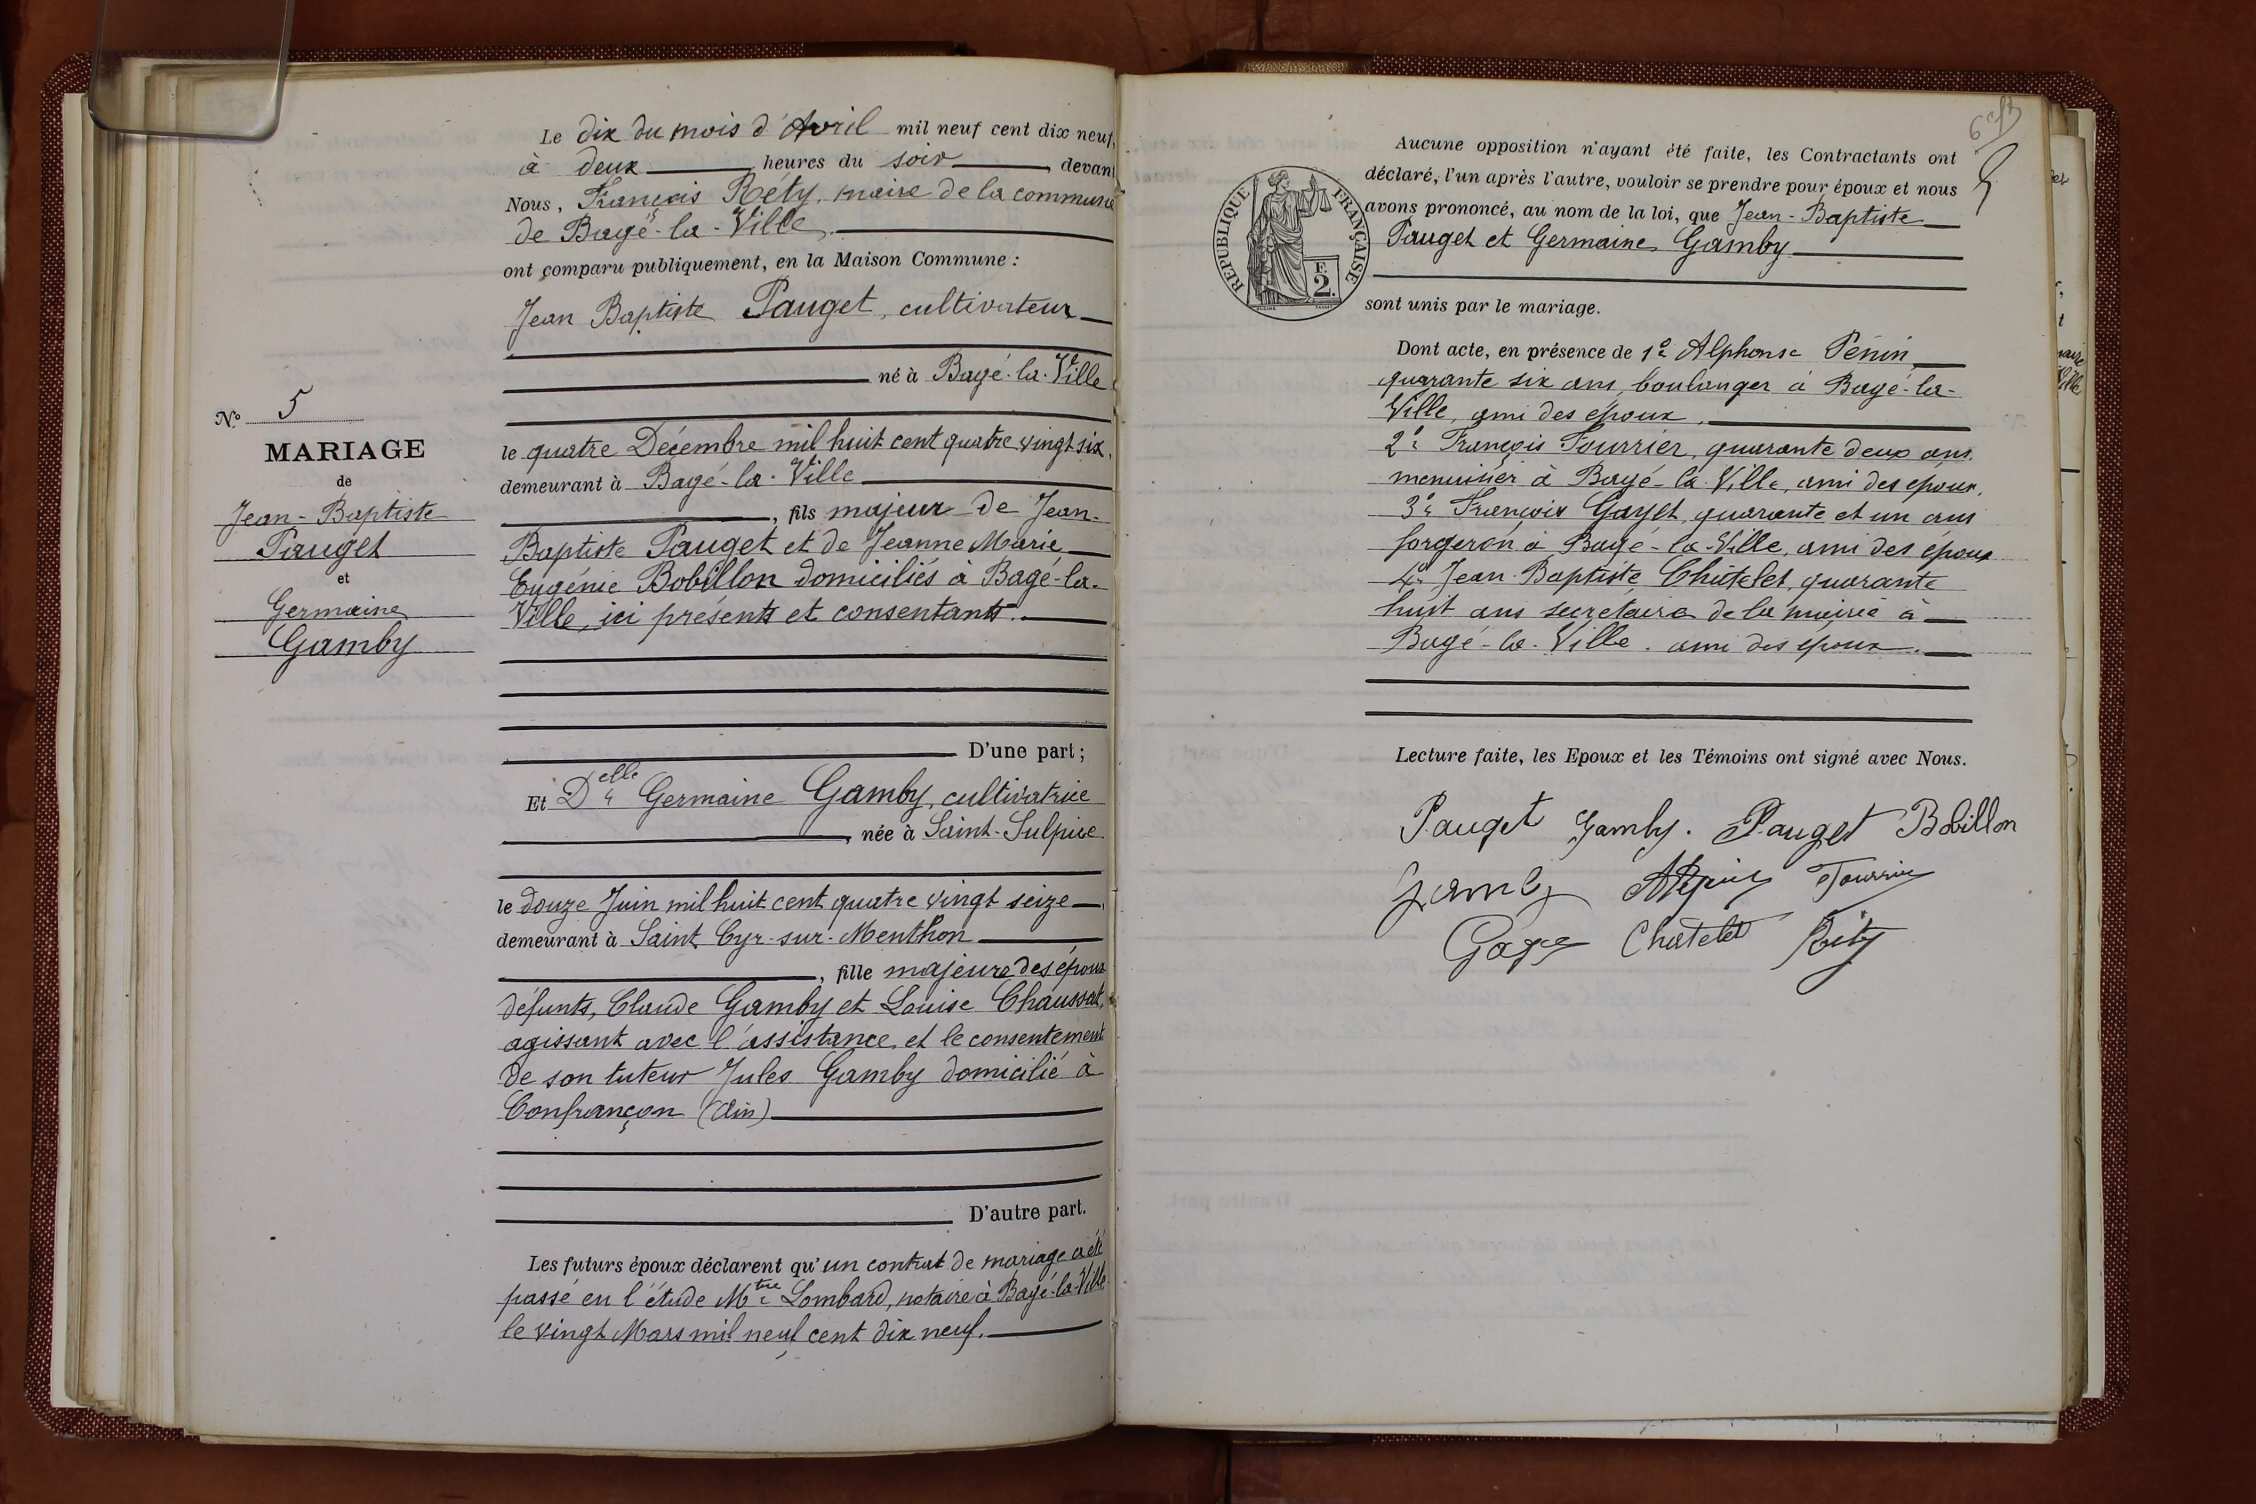 Le dix du mois d'Avril mil neuf cent dix neuf,
à deux heures du soir, devant
Nous, François Réty, maire de la commune
de Bagé-la-Ville,
ont comparu publiquement, en la Maison Commune :
Jean Baptiste Pauget, cultivateur
né à Bagé-la-Ville
le quatre Décembre mil huit cent quatre vingt six,
demeurant à Bagé-la-Ville
, fils majeur de Jean-
Baptiste Pauget et de Jeanne Marie
Eugénie Bobillon domiciliés à Bagé-la-
Ville, ici présents et consentants.
D'une part ;
Et Delle Germaine Gamby, cultivatrice
, née à Saint-Sulpice
le douze Juin mil huit cent quatre vingt seize,
demeurant à Saint Cyr-sur-Menthon
, fille majeure des époux
défunts, Claude Gamby et Louise Chaussat,
agissant avec l'assistance et le consentement
de son tuteur Jules Gamby domicilié à
Confrançon (Ain)
D'autre part.
Les futurs époux déclarent qu'un contrat de mariage a été
passé en l'étude Mtre Lombard, notaire à Bagé-la-Ville
le vingt Mars mil neuf cent dix neuf.
N° 5
MARIAGE
de
Jean-Baptiste
Pauget
et
Germaine
Gamby
Aucune opposition n'ayant été faite, les Contractants ont
déclaré, l'un après l'autre, vouloir se prendre pour époux et nous
avons prononcé, au nom de la loi, que Jean-Baptiste
Pauget et Germaine Gamby
sont unis par le mariage.
RÉPUBLIQUE FRANÇAISE
F.
2.
Dont acte, en présence de 1° Alphonse Pénin
quarante six ans, boulanger à Bagé-la-
Ville, ami des époux.
2° François Fourrier, quarante deux ans
menuisier à Bagé-la-Ville, ami des époux.
3° François Gayet, quarante et un ans
forgeron à Bagé-la-Ville, ami des époux
4° Jean-Baptiste Châtelet, quarante
huit ans secretaire de la mairie à
Bagé-la-Ville. ami des époux.
Lecture faite, les Epoux et les Témoins ont signé avec Nous.
Pauget Gamby. Pauget Bobillon
Gamby Fourrier
Gayet Châtelet Réty